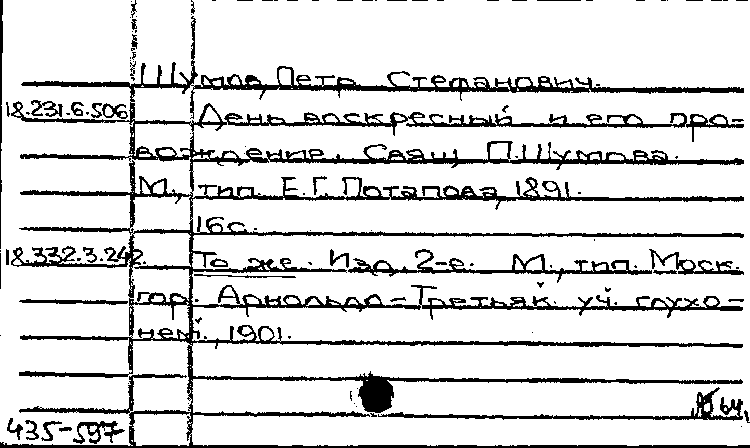 Шумов, Петр Стефанович.
18.231.6.506 День воскресный и его про=
вождение. Свящ. П.Шумова.
М., тип. Е.Г. Потапова, 1891.
16с.
18.332.3.242. То же. Изд. 2-е. М., тип. Моск.
гор. Арнольдо=Третьяк. уч. глухо=
нем., 1901.
64,
435-597